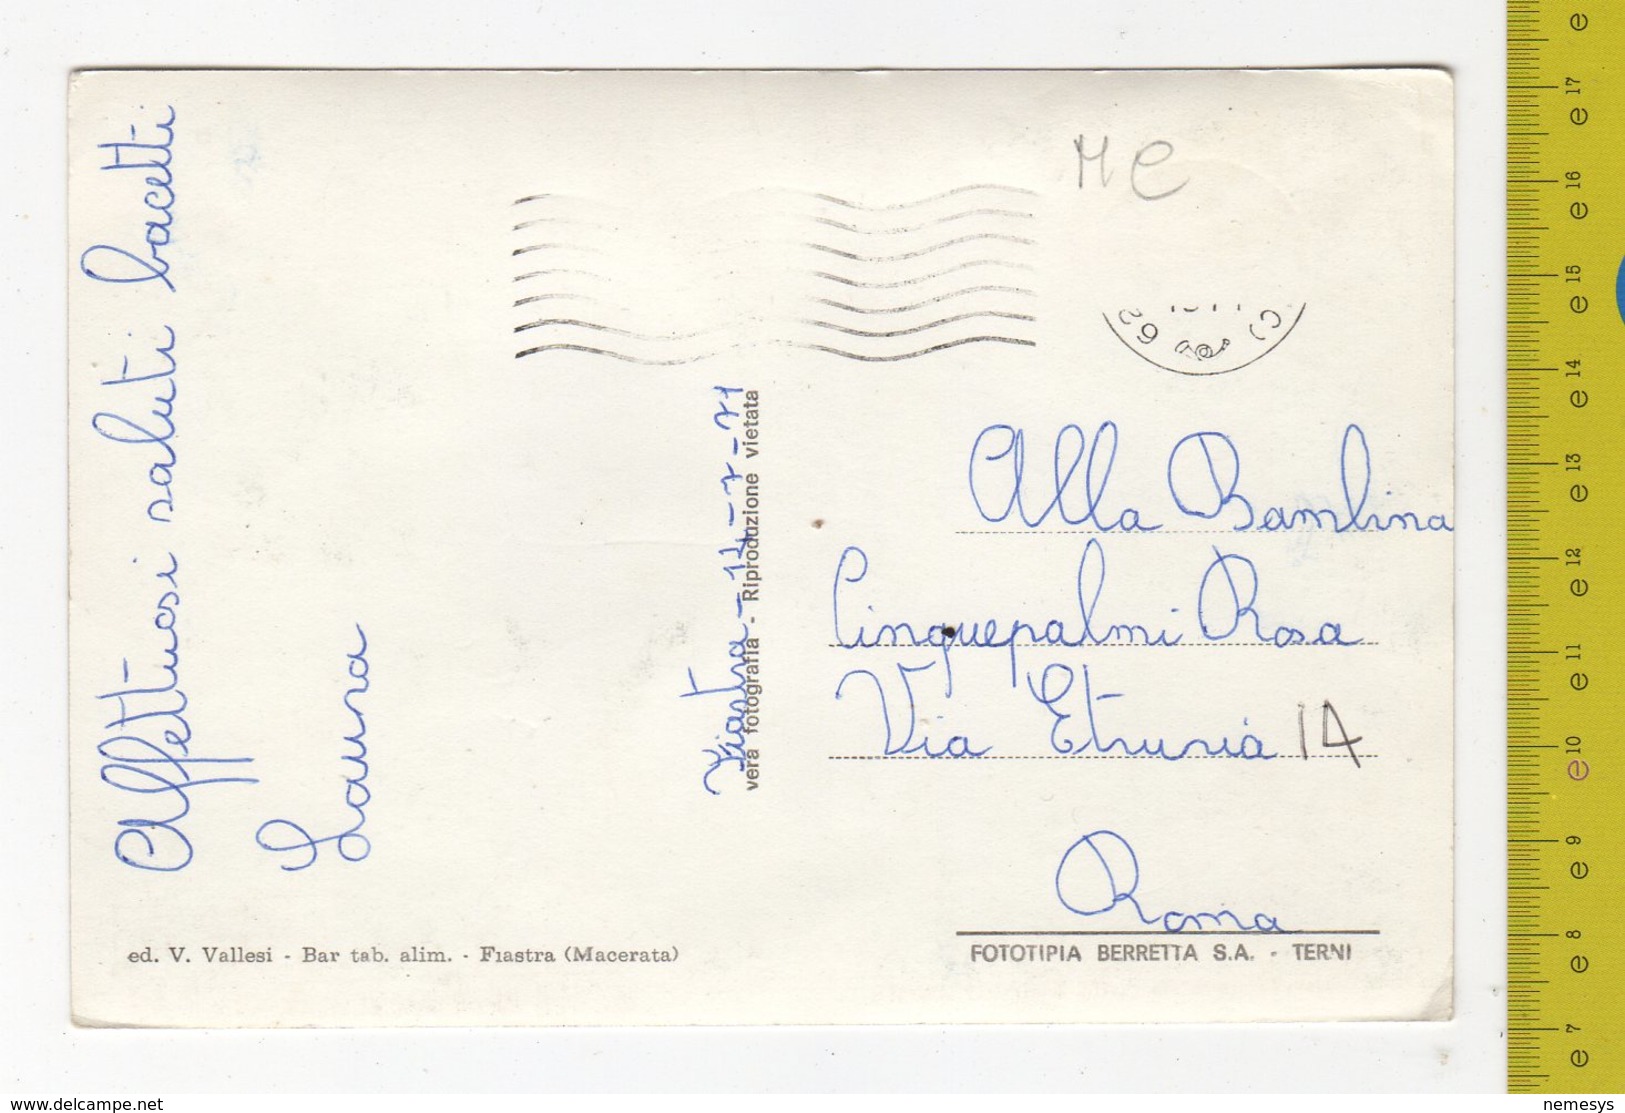 Affettuosi saluti bacetti
Laura
Fiastra - 14 - 7 - 71
vera fotografia - Riproduzione vietata
ed. V. Vallesi - Bar tab. alim. - Fiastra (Macerata)
ME
62
Alla Bambina
Cinquepalmi Rosa
Via Etruria 14
Roma
FOTOTIPIA BERRETTA S.A. - TERNI
e
17
e
16
e
15
e
14
e
13
e
12
e
11
e
10
e
9
e
8
e
7
e
www.delcampe.net
nemesys